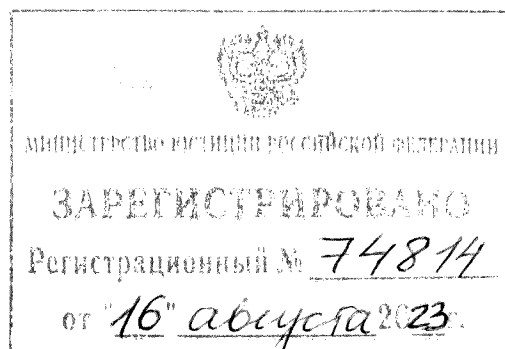 МИНИСТЕРСТВО ЮСТИЦИИ РОССИЙСКОЙ ФЕДЕРАЦИИ
ЗАРЕГИСТРИРОВАНО
Регистрационный № 74814
от "16" августа 2023 г.